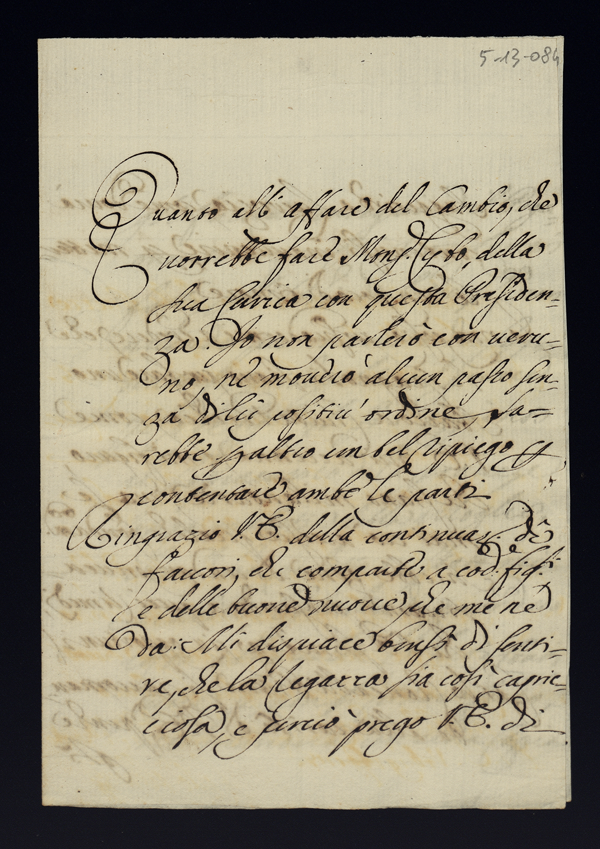 5-13-084
Quanto all' affare del Cambio, che
vorrebbe fare Mons. Cybo, della
sua Carica con questa Presiden-
za. Io non parlerò con veru-
no, nè moverò alcun passo sen-
za di lei positivi ordine, sa-
rebbe p altro un bel ripiego p
contentare ambe le parti.
Ringrazio V.E. della continuaz. de
favori, che comparte a cod.i figli.
e delle buone nuove che me ne
dà. Mi dispiace bensì di senti-
re, che la Legazza sia così capric-
ciosa, e perciò prego V.E. di